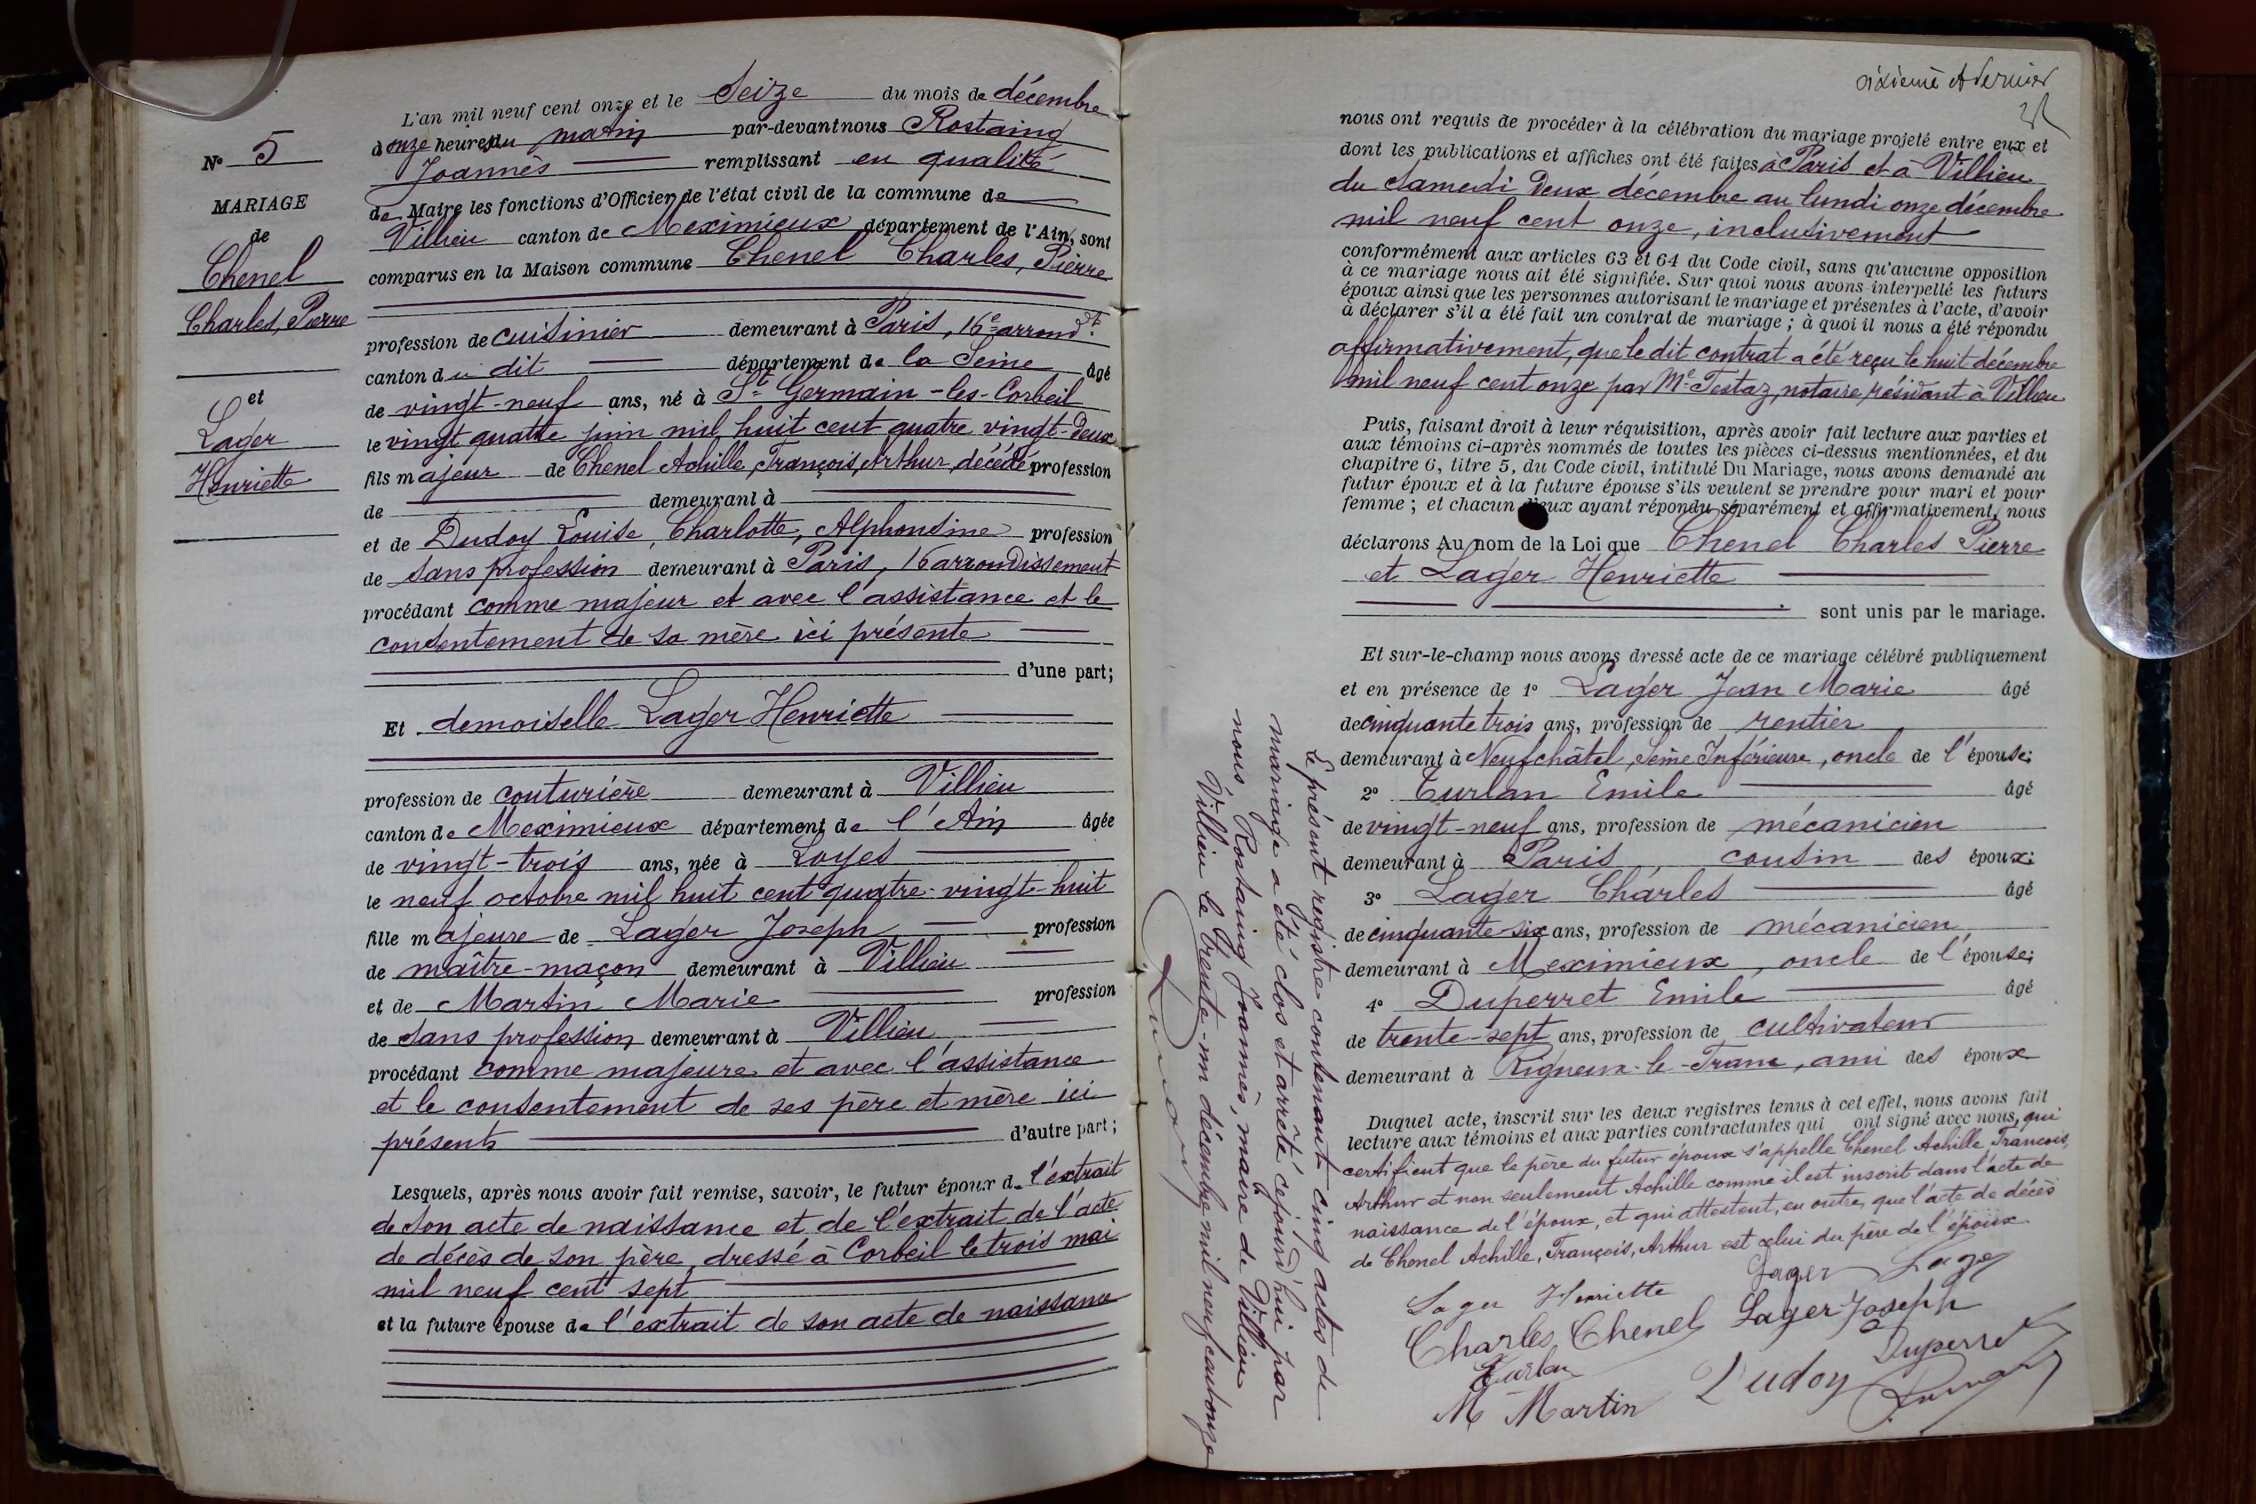 L'an mil neuf cent onze et le Seize du mois de décembre
à onze heures du matin par-devant nous Rostaing
Joannès remplissant en qualité
de Maire les fonctions d'Officier de l'état civil de la commune de
Villieu canton de Meximieux département de l'Ain, sont
comparus en la Maison commune Chenel Charles, Pierre
profession de cuisinier demeurant à Paris, 16e arrondt
canton du dit département de la Seine âgé
de vingt-neuf ans, né à St Germain-les-Corbeil
le vingt quatre juin mil huit cent quatre vingt-deux
fils majeur de Chenel Achille, François, Arthur, décédé profession
de demeurant à
et de Dudoy Louise, Charlotte, Alphonsine profession
de sans profession demeurant à Paris, 16 arrondissement
procédant comme majeur et avec l'assistance et le
consentement de sa mère ici présente
d'une part;
Et demoiselle Lager Henriette
profession de couturière demeurant à Villieu
canton de Meximieux département de l'Ain âgée
de vingt-trois ans, née à Loyes
le neuf octobre mil huit cent quatre-vingt-huit
fille majeure de Lager Joseph profession
de maître-maçon demeurant à Villieu
et de Martin Marie profession
de sans profession demeurant à Villieu
procédant comme majeure et avec l'assistance
et le consentement de ses père et mère ici
présents d'autre part;
Lesquels, après nous avoir fait remise, savoir, le futur époux de l'extrait
de son acte de naissance et de l'extrait de l'acte
de décès de son père, dressé à Corbeil le trois mai
mil neuf cent sept
et la future épouse de l'extrait de son acte de naissance
N° 5
MARIAGE
de
Chenel
Charles, Pierre
et
Lager
Henriette
sixième et dernier
nous ont requis de procéder à la célébration du mariage projeté entre eux et
dont les publications et affiches ont été faites à Paris et à Villieu
du Samedi Deux décembre au lundi onze décembre
mil neuf cent onze, inclusivement
conformément aux articles 63 et 64 du Code civil, sans qu'aucune opposition
à ce mariage nous ait été signifiée. Sur quoi nous avons interpellé les futurs
époux ainsi que les personnes autorisant le mariage et présentes à l'acte, d'avoir
à déclarer s'il a été fait un contrat de mariage; à quoi il nous a été répondu
affirmativement, que le dit contrat a été reçu le huit décembre
mil neuf cent onze par Me Testaz, notaire, résidant à Villieu
Puis, faisant droit à leur réquisition, après avoir fait lecture aux parties et
aux témoins ci-après nommés de toutes les pièces ci-dessus mentionnées, et du
chapitre 6, titre 5, du Code civil, intitulé Du Mariage, nous avons demandé au
futur époux et à la future épouse s'ils veulent se prendre pour mari et pour
femme; et chacun d'eux ayant répondu séparément et affirmativement, nous
déclarons Au nom de la Loi que Chenel Charles Pierre
et Lager Henriette
sont unis par le mariage.
Et sur-le-champ nous avons dressé acte de ce mariage célébré publiquement
et en présence de 1° Lager Jean Marie âgé
de cinquante trois ans, profession de rentier
demeurant à Neufchâtel, Seine Inférieure, oncle de l'épouse;
2° Turlan Emile âgé
de vingt-neuf ans, profession de mécanicien
demeurant à Paris, cousin des époux;
3° Lager Charles âgé
de cinquante-six ans, profession de mécanicien
demeurant à Meximieux, oncle de l'épouse;
4° Duperret Emile âgé
de trente-sept ans, profession de cultivateur
demeurant à Rigneux-le-Franc, ami des époux
Duquel acte, inscrit sur les deux registres tenus à cet effet, nous avons fait
lecture aux témoins et aux parties contractantes qui ont signé avec nous, qui
certifient que le père du futur époux s'appelle Chenel Achille François,
Arthur et non seulement Achille comme il est inscrit dans l'acte de
naissance de l'époux, et qui attestent, en outre, que l'acte de décès
de Chenel Achille, François, Arthur est celui du père de l'époux
Lager Henriette Lager Lager
Charles Chenel Lager Joseph
Turlan Duperret
M Martin Dudoy
Le présent registre contenant cinq actes de
mariage a été clos et arrêté cejourd'hui par
nous, Rostaing Joannès, maire de Villieu
Villieu le trente-un décembre mil neuf cent onze